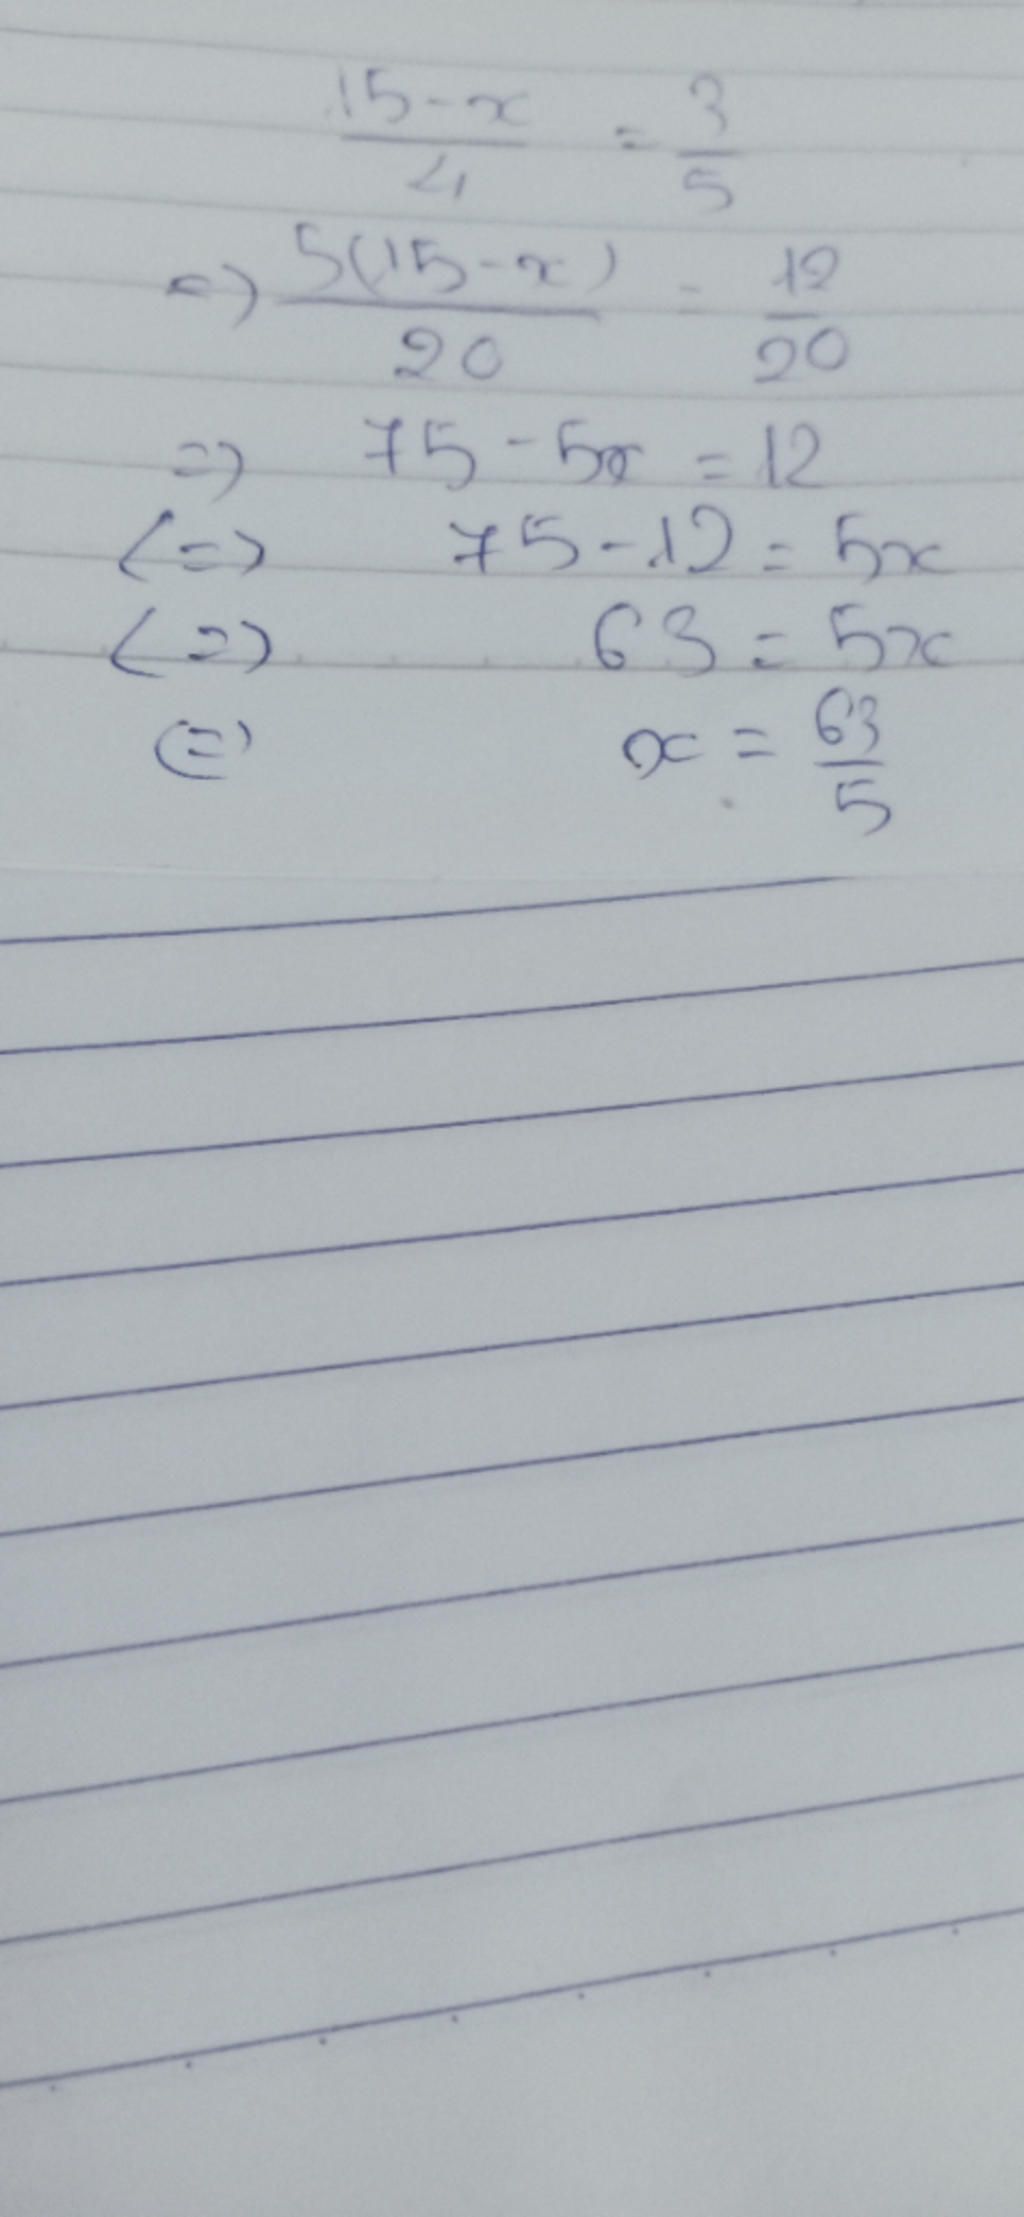 15-x/4 = 3/5
=> 5(15-x)/20 = 12/20
=> 75-5x = 12
<=> 75-12 = 5x
<=> 63 = 5x
<=> x = 63/5